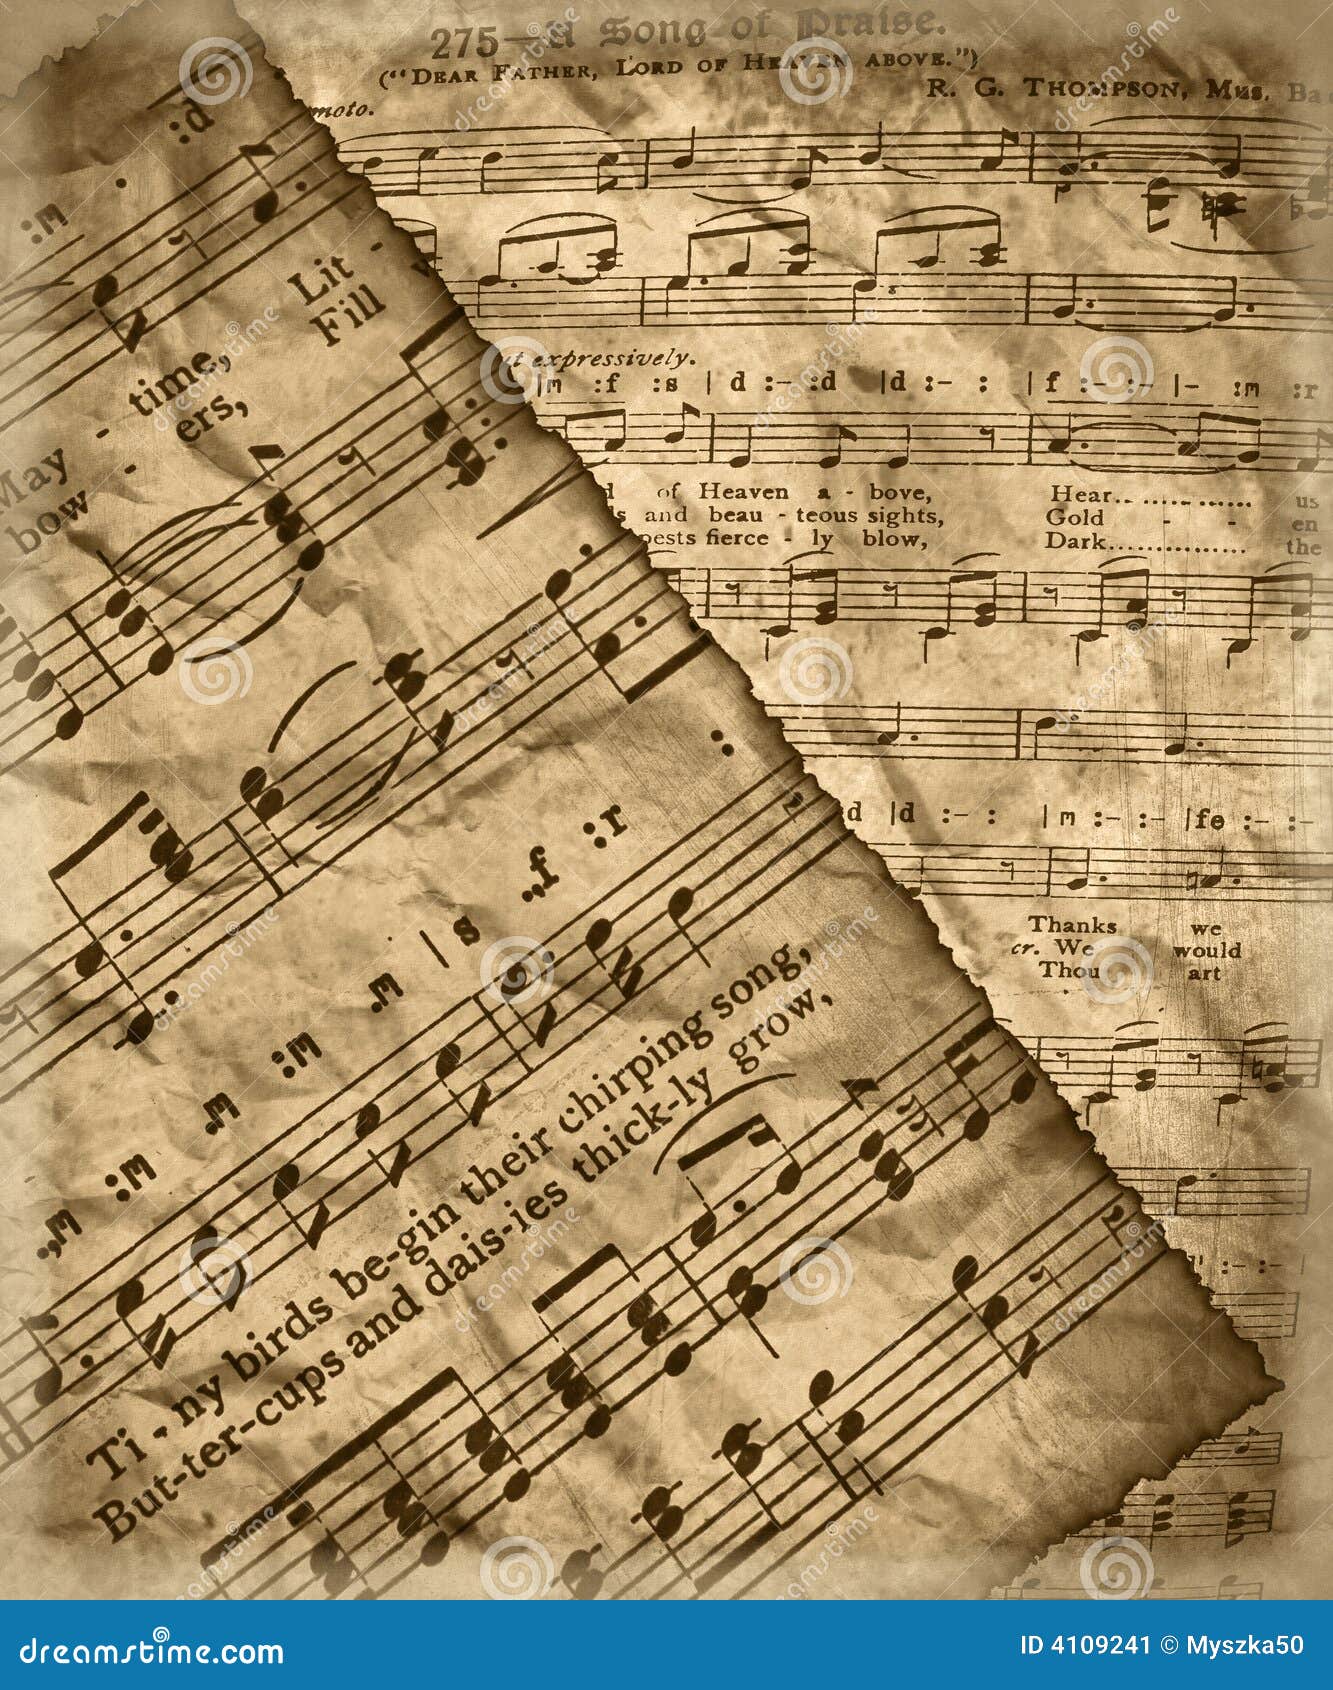 275—A Song of Praise.
("DEAR FATHER, LORD OF HEAVEN ABOVE.")
R. G. THOMPSON, Mus. Ba
moto.
:d
:m
Lit -
Fill
time,
ers,
May -
bow -
t expressively.
|m :f :s | d :- :d |d :- : | f :- :- |- :m :r
d of Heaven a - bove, Hear.. .............. us
ls and beau - teous sights, Gold - - en
pests fierce - ly blow, Dark................ the
d |d :- : | m :- :- |fe :- :-
Thanks we
cr. We would
Thou art
:- :- |
.,m :m .m :m .m | s .,f :r :
Ti - ny birds be-gin their chirping song,
But-ter-cups and dais-ies thick-ly grow,
dreamstime.com
ID 4109241 © Myszka50